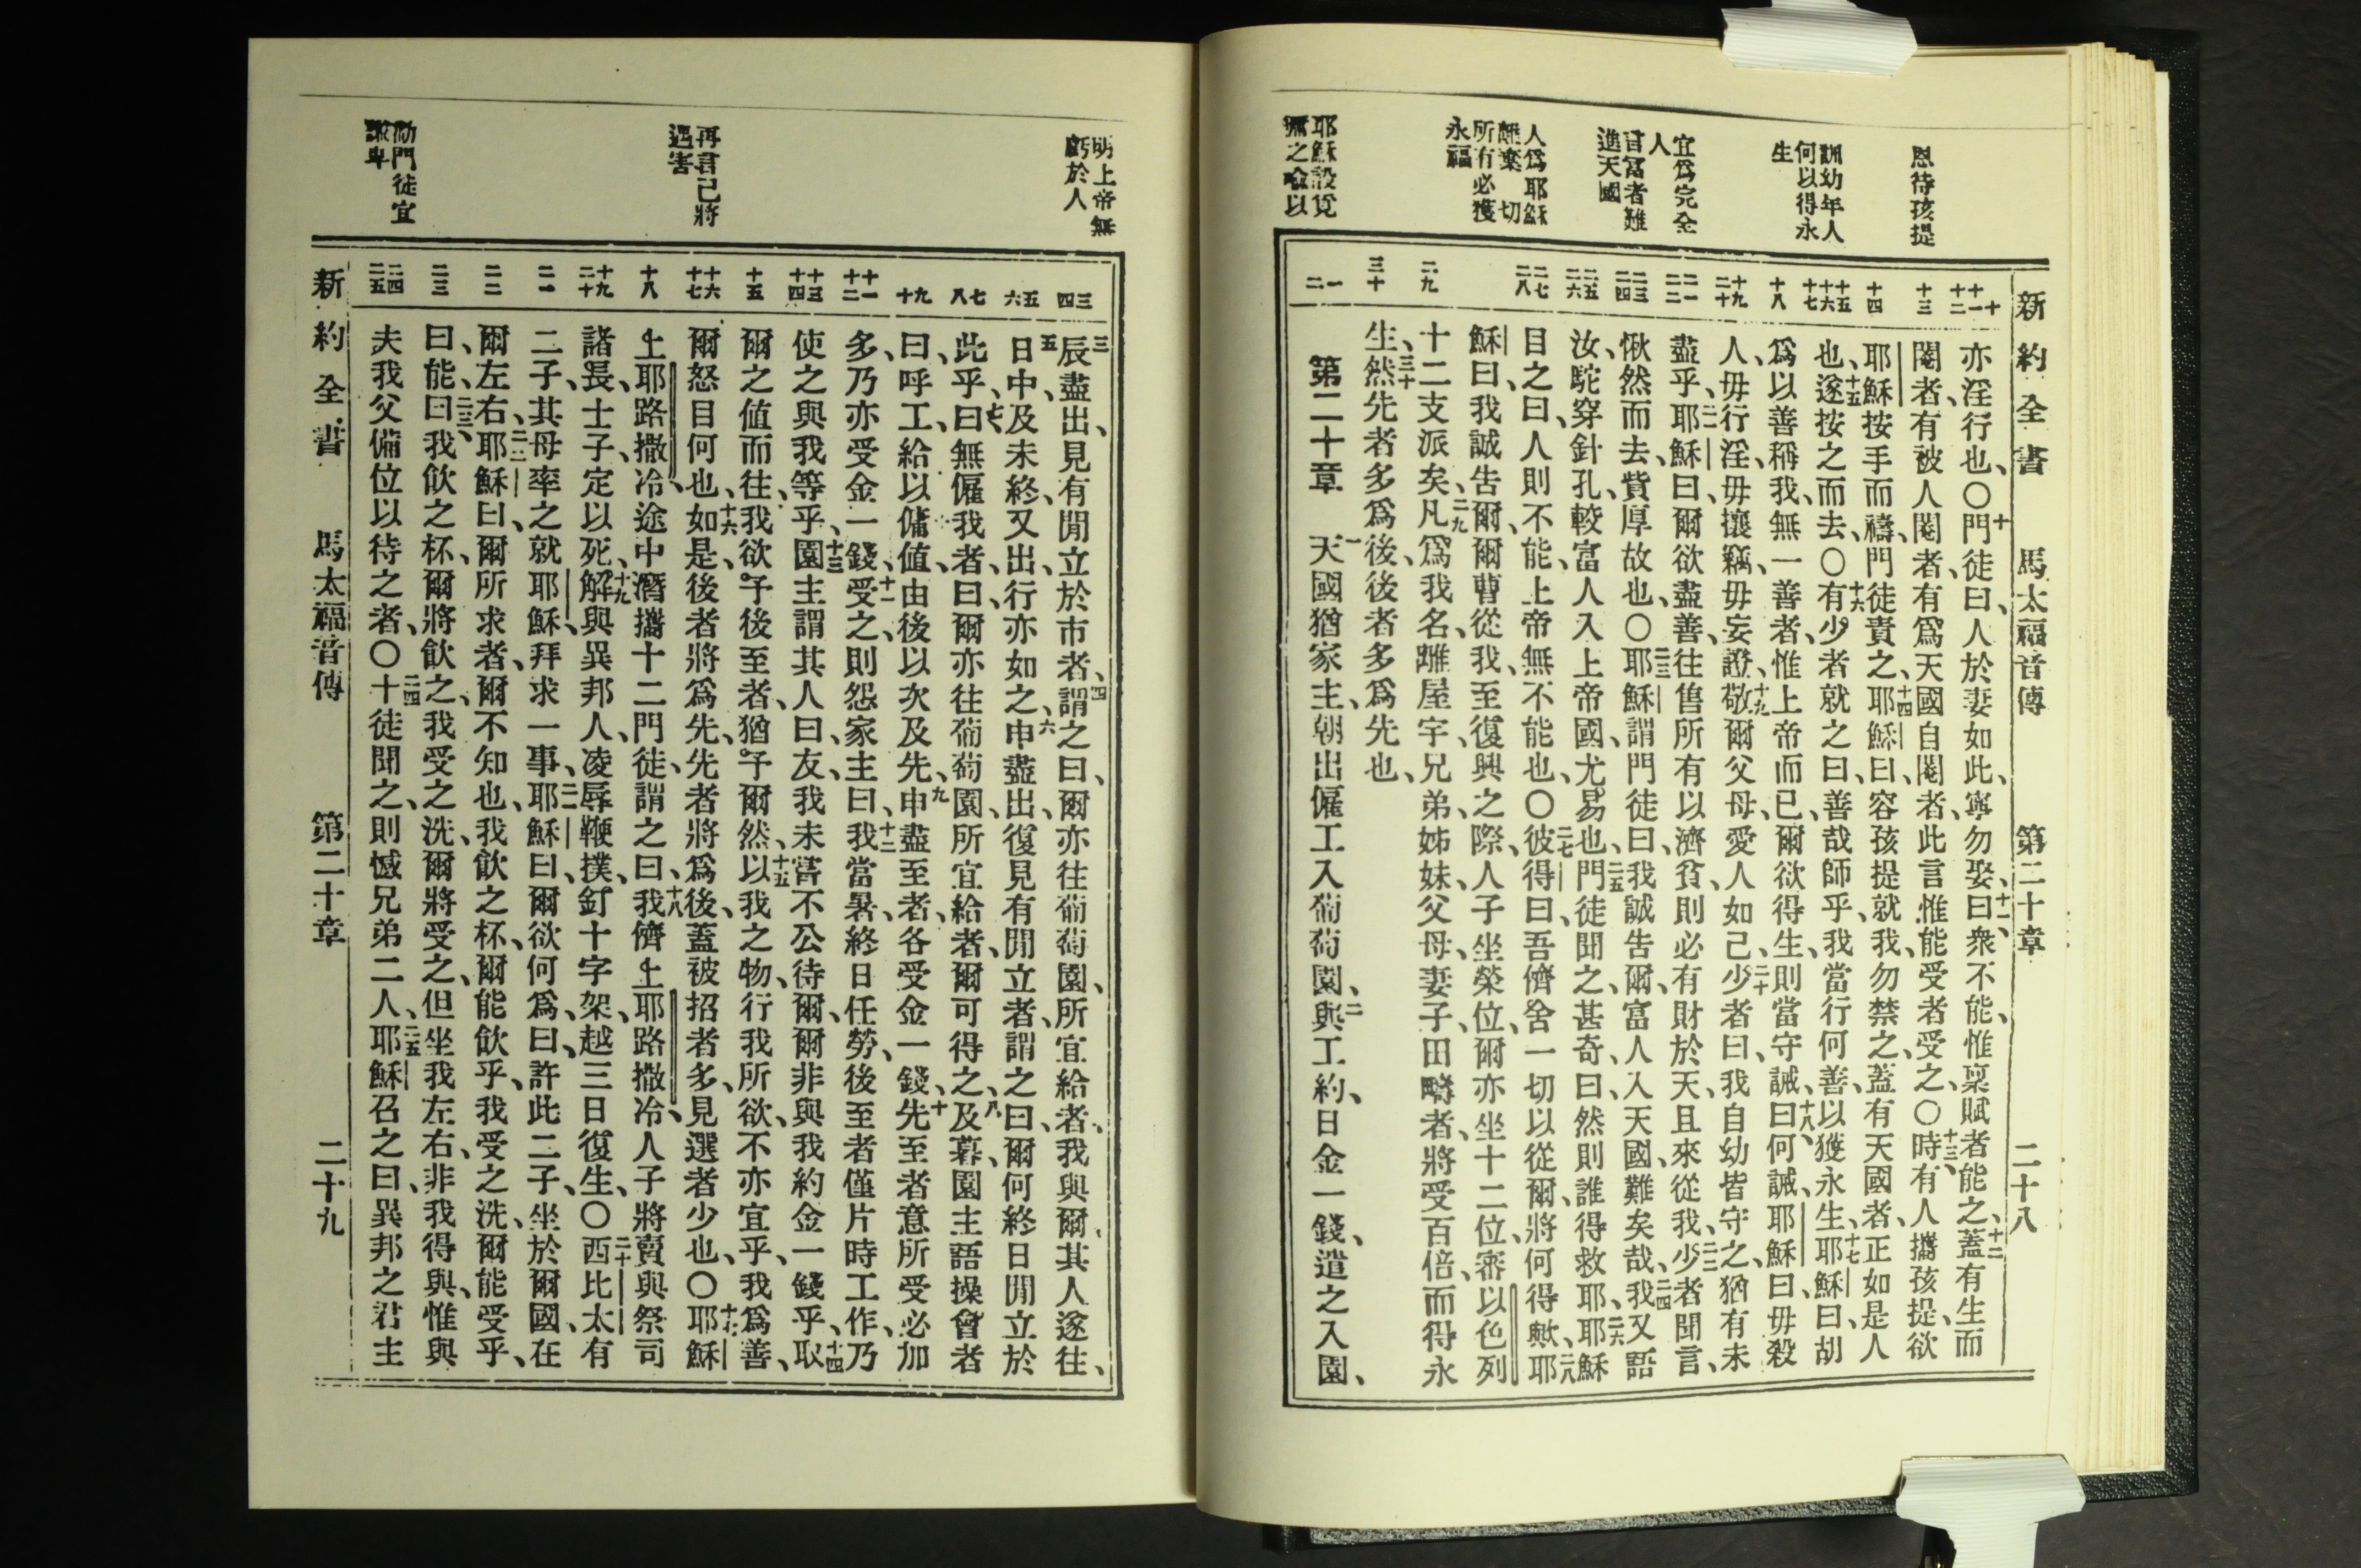 新約全書　馬太福音傳　第二十章　二十八
恩待孩提
訓幼年人
何以得永
生
宜爲完全
人
言富者難
進天國
人爲耶穌
離棄一切
所有必獲
永福
耶穌設覓
傭之喩以
十
十一
十二
十三
十四
十五
十六
十七
十八
十九
二十
二一
二二
二三
二四
二五
二六
二七
二八
二九
三十
一
二
亦淫行也、〇十門徒曰、人於妻如此、寧勿娶、十一曰、衆不能、惟稟賦者能之、十二蓋有生而
閹者、有被人閹者、有爲天國自閹者、此言惟能受者受之、〇十三時有人攜孩提、欲
耶穌按手而禱、門徒責之、十四耶穌曰、容孩提就我、勿禁之、蓋有天國者、正如是人
也、十五遂按之而去、〇十六有少者就之曰、善哉師乎、我當行何善、以獲永生、十七耶穌曰、胡
爲以善稱我、無一善者、惟上帝而已、爾欲得生、則當守誡、十八曰、何誡、耶穌曰、毋殺
人、毋行淫、毋攘竊、毋妄證、十九敬爾父母、愛人如己、二十少者曰、我自幼皆守之、猶有未
盡乎、二一耶穌曰、爾欲盡善、往售所有以濟貧、則必有財於天、且來從我、二二少者聞言、
愀然而去、貲厚故也、〇二三耶穌謂門徒曰、我誠告爾、富人入天國、難矣哉、二四我又語
汝、駝穿針孔、較富人入上帝國、尤易也、二五門徒聞之、甚奇、曰、然則誰得救耶、二六耶穌
目之曰、人則不能、上帝無不能也、〇二七彼得曰、吾儕舍一切以從爾、將何得歟、二八耶
穌曰、我誠吿爾、爾曹從我、至復興之際、人子坐榮位、爾亦坐十二位、審以色列
十二支派矣、二九凡爲我名、離屋宇、兄弟、姊妹、父母、妻子、田疇者、將受百倍、而得永
生、三十然先者多爲後、後者多爲先也、
第二十章　一天國猶家主、朝出僱工入葡萄園、二與工約、日金一錢、遣之入園、
明上帝無
虧於人
再言己將
遇害
勸門徒宜
謙卑
三
四
五
六
七
八
九
十
十一
十二
十三
十四
十五
十六
十七
十八
十九
二十
二一
二二
二三
二四
二五
三辰盡出、見有閒立於市者、四謂之曰、爾亦往葡萄園、所宜給者、我與爾、其人遂往、
五日中、及未終、又出、行亦如之、六申盡出、復見有閒立者、謂之曰、爾何終日閒立於
此乎、七曰、無僱我者、曰、爾亦往葡萄園、所宜給者、爾可得之、八及暮、園主語操會者
曰、呼工、給以傭値、由後以次及先、九申盡至者、各受金一錢、十先至者意所受必加
多、乃亦受金一錢、十一受之、則怨家主曰、十二我當暑、終日任勞、後至者僅片時工作、乃
使之與我等乎、十三園主謂其人曰、友、我未嘗不公待爾、爾非與我約金一錢乎、十四取
爾之値而往、我欲予後至者、猶予爾然、十五以我之物、行我所欲、不亦宜乎、我爲善、
爾怒目何也、十六如是、後者將爲先、先者將爲後、蓋被招者多、見選者少也、〇十七耶穌
上耶路撒冷、途中潛攜十二門徒、謂之曰、十八我儕上耶路撒冷、人子將賣與祭司
諸長、士子、定以死、十九解與異邦人、凌辱、鞭撲、釘十字架、越三日復生、〇二十西比太有
二子、其母率之就耶穌、拜求一事、二一耶穌曰、爾欲何爲、曰、許此二子、坐於爾國、在
爾左右、二二耶穌曰、爾所求者、爾不知也、我飮之杯、爾能飮乎、我受之洗、爾能受乎、
曰、能、二三曰、我飮之杯、爾將飮之、我受之洗、爾將受之、但坐我左右、非我得與、惟與
夫我父備位以待之者、〇二四十徒聞之、則憾兄弟二人、二五耶穌召之曰、異邦之君主
新約全書　馬太福音傳　第二十章　二十九